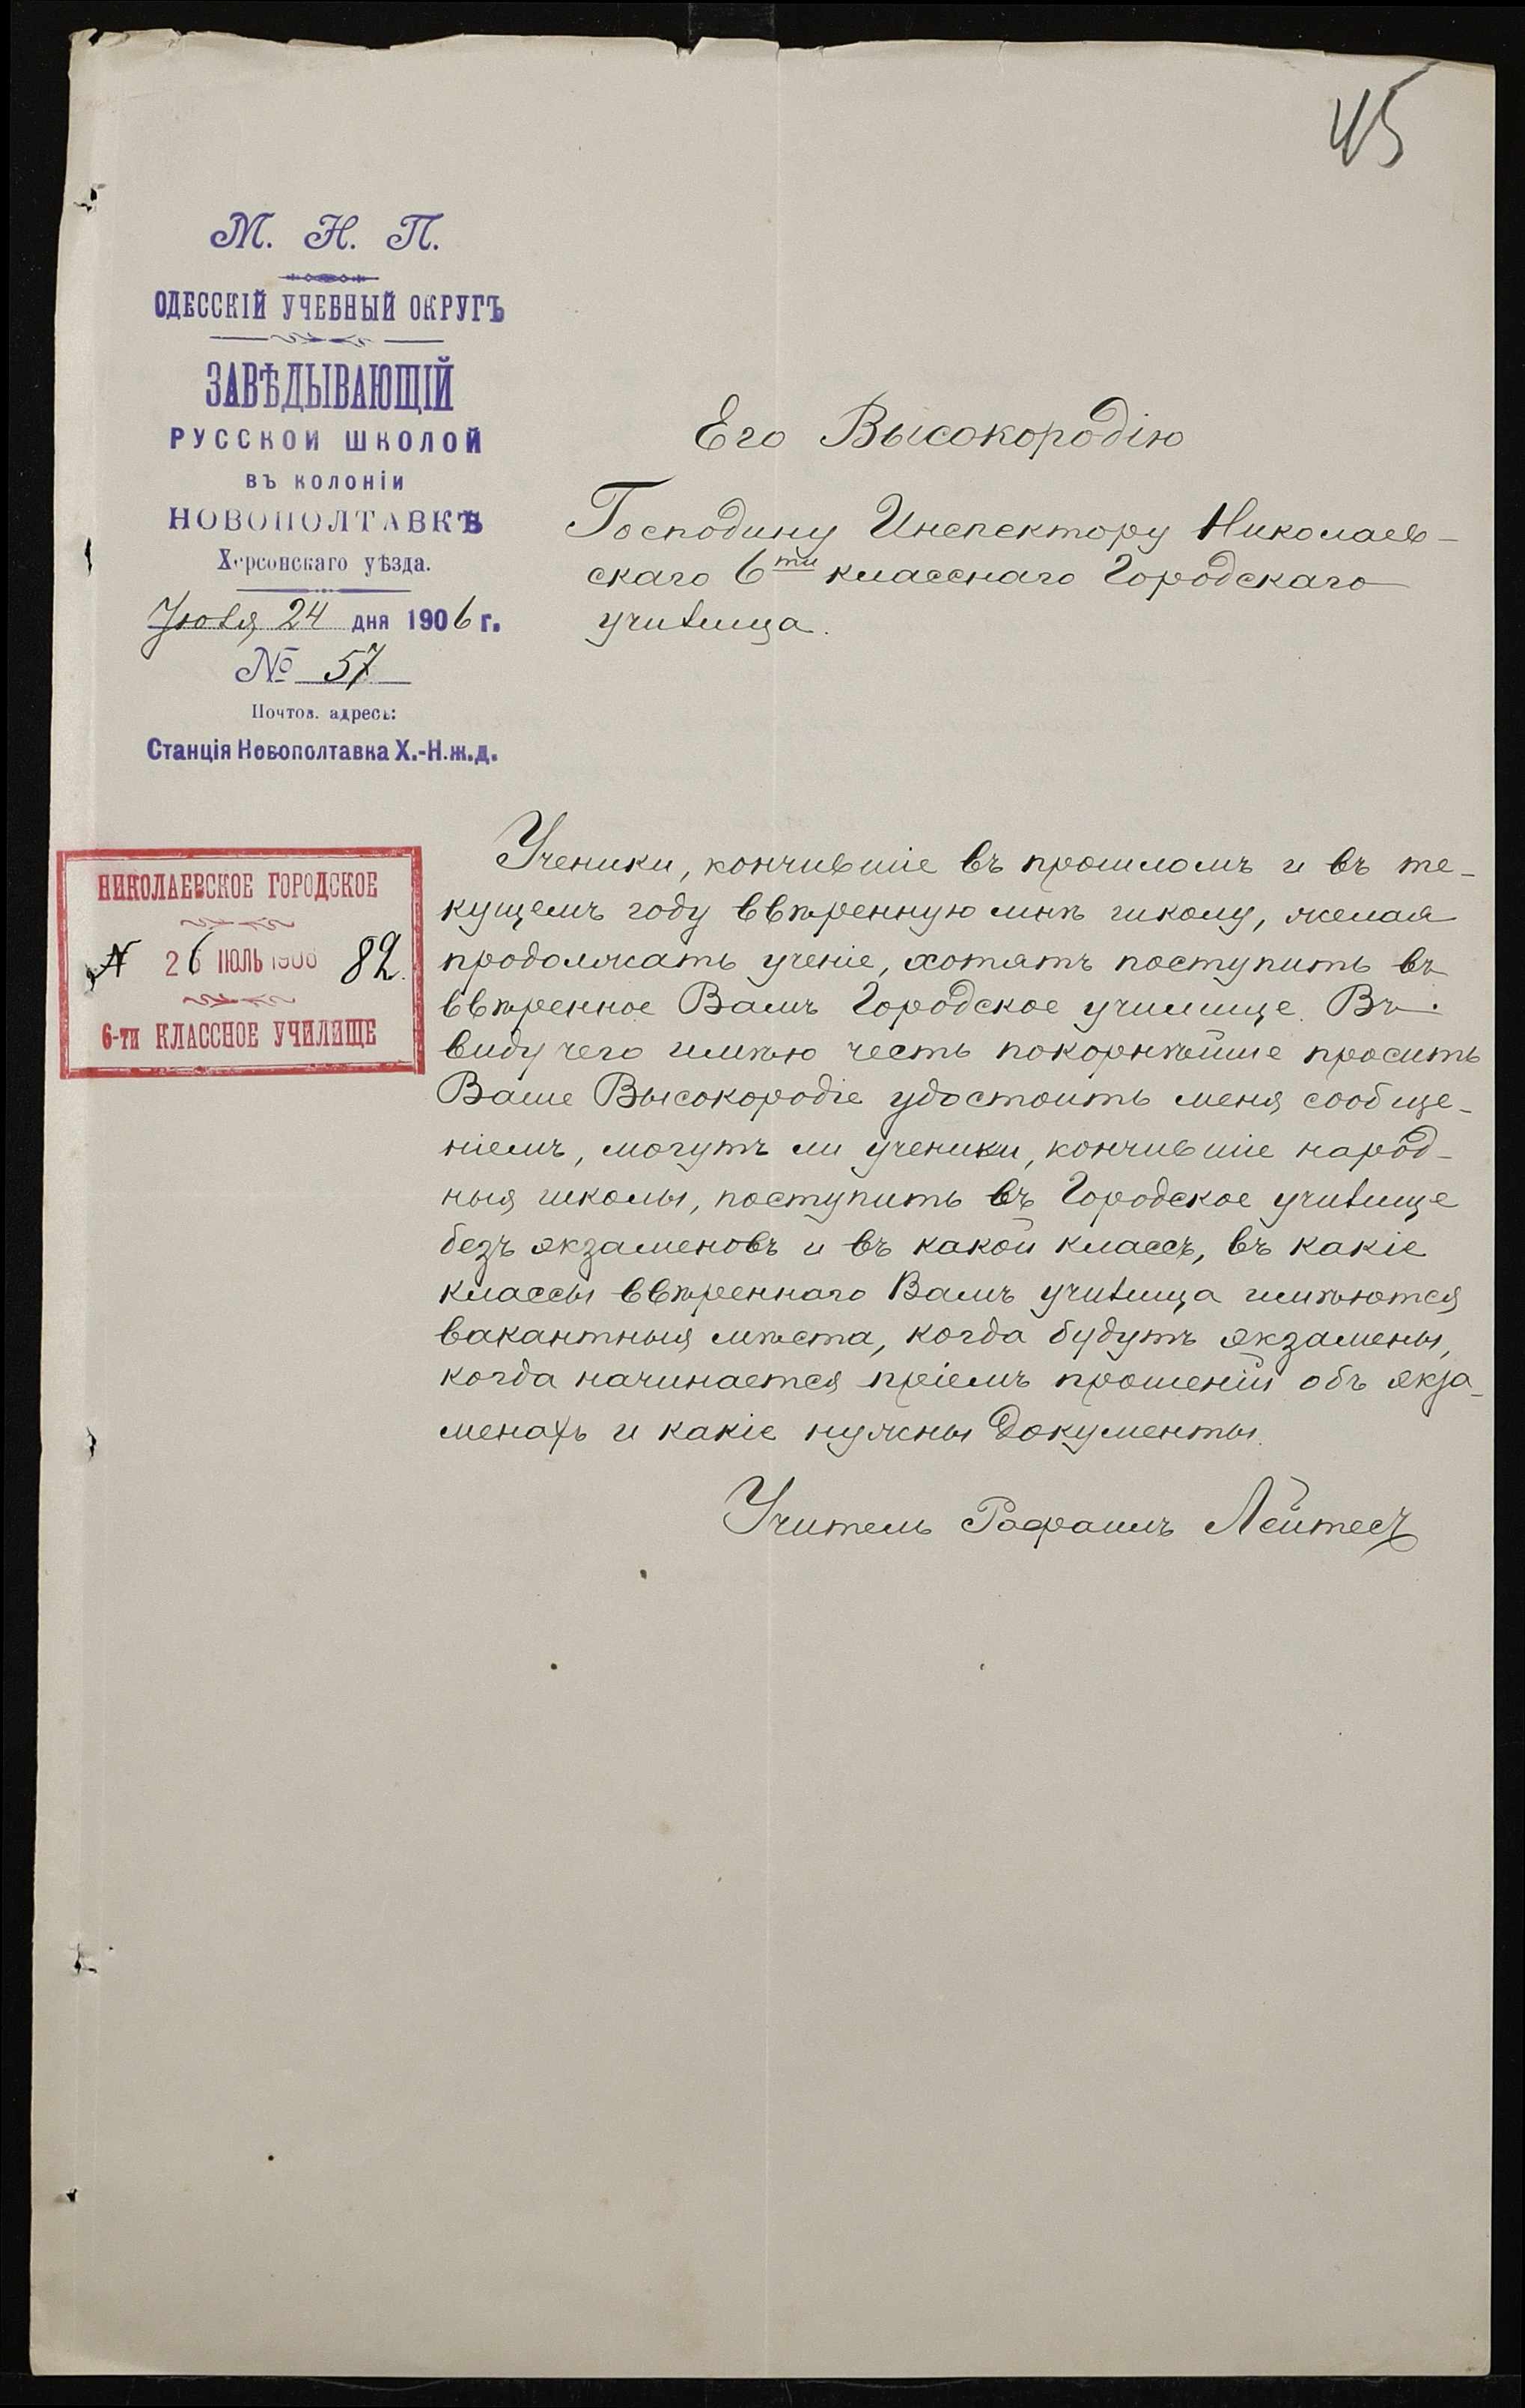 45
М. Н. П.
ОДЕССКІЙ УЧЕБНЫЙ ОКРУГЪ
ЗАВѢДЫВАЮЩІЙ
РУССКОЙ ШКОЛОЙ
ВЪ КОЛОНІИ
НОВОПОЛТАВКѢ
Херсонскаго уѣзда.
Іюля 24 дня 1906 г.
№ 57
Почтов. адресъ:
Станція Новополтавка Х.-Н.ж.д.
Его Высокородію
Господину Инспектору Николаев-
скаго 6ти класснаго Городскаго
училища.
НИКОЛАЕВСКОЕ ГОРОДСКОЕ
№ 26 ІЮЛЬ 1906 82.
6-ти КЛАССНОЕ УЧИЛИЩЕ
Ученики, кончившіе въ прошломъ и въ те-
кущемъ году ввѣренную мнѣ школу, желая
продолжать ученіе, хотятъ поступить въ
ввѣренное Вамъ Городское училище. Въ
виду чего имѣю честь покорнѣйше просить
Ваше Высокородіе удостоить меня сообще-
ніемъ, могутъ ли ученики, кончившіе народ-
ныя школы, поступить въ Городское училище
безъ экзаменовъ и въ какой классъ, въ какіе
классы ввѣреннаго Вамъ училища имѣются
вакантныя мѣста, когда будутъ экзамены,
когда начинается пріемъ прошеній объ экза-
менахъ и какіе нужны документы.
Учитель Рафаилъ Лейтесъ